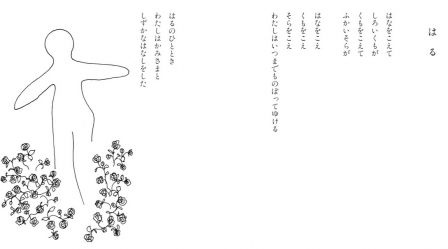 はる
はなをこえて
しろいくもが
くもをこえて
ふかいそらが
はなをこえ
くもをこえ
そらをこえ
わたしはいつまでものぼってゆける
はるのひととき
わたしはかみさまと
しずかなはなしをした